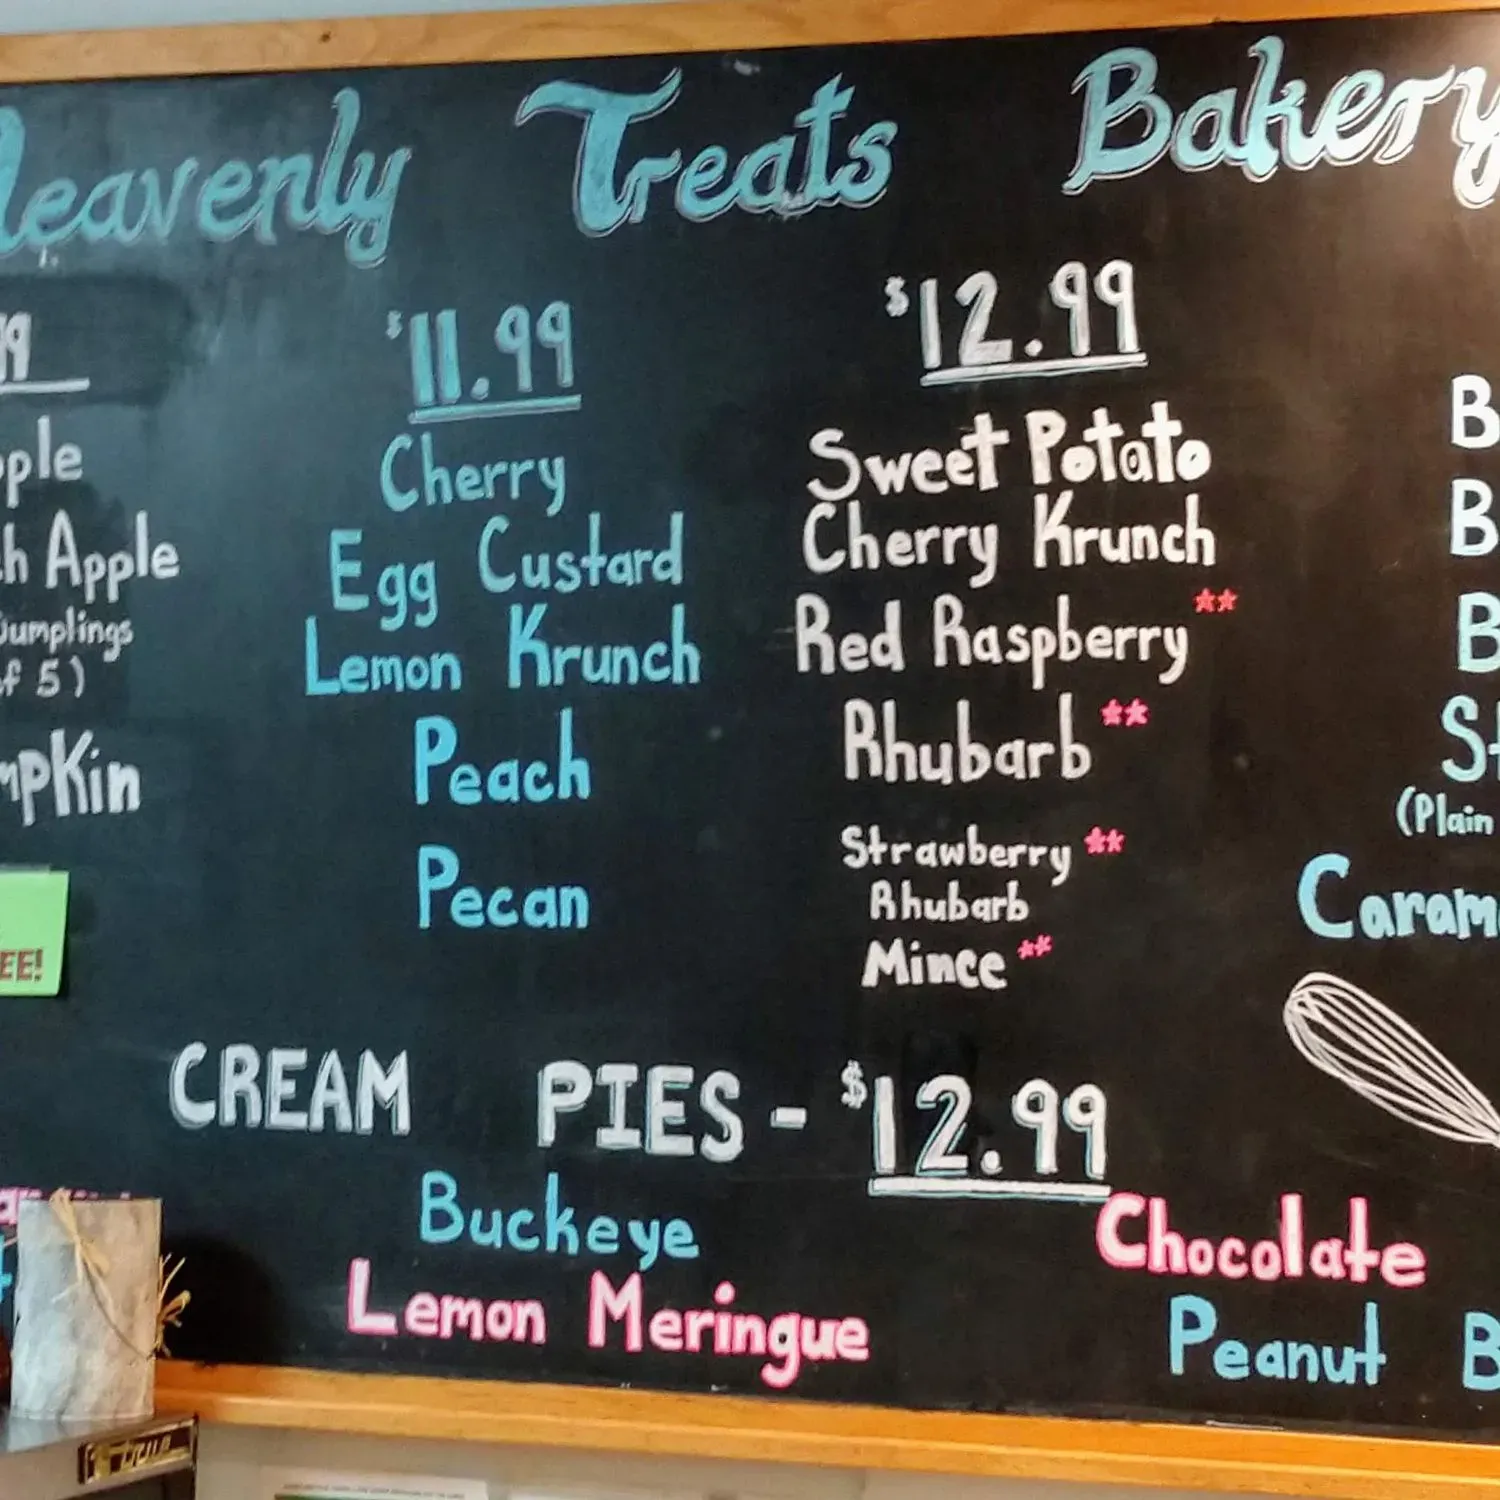 Heavenly Treats Bakery
$11.99
Cherry
Egg Custard
Lemon Krunch
Peach
Pecan
$12.99
Sweet Potato
Cherry Krunch
Red Raspberry **
Rhubarb **
Strawberry **
Rhubarb
Mince **
99
pple
h Apple
Dumplings
of 5)
mpkin
EE!
B
B
B
St
(Plain
Caram
CREAM PIES - $12.99
Buckeye
Lemon Meringue
Chocolate
Peanut B